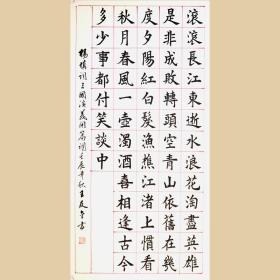 滾滾長江東逝水浪花淘盡英雄
是非成敗轉頭空青山依舊在幾
度夕陽紅白髮漁樵江渚上慣看
秋月春風一壺濁酒喜相逢古今
多少事都付笑談中
楊慎詞三國演義開篇詞壬辰年秋書